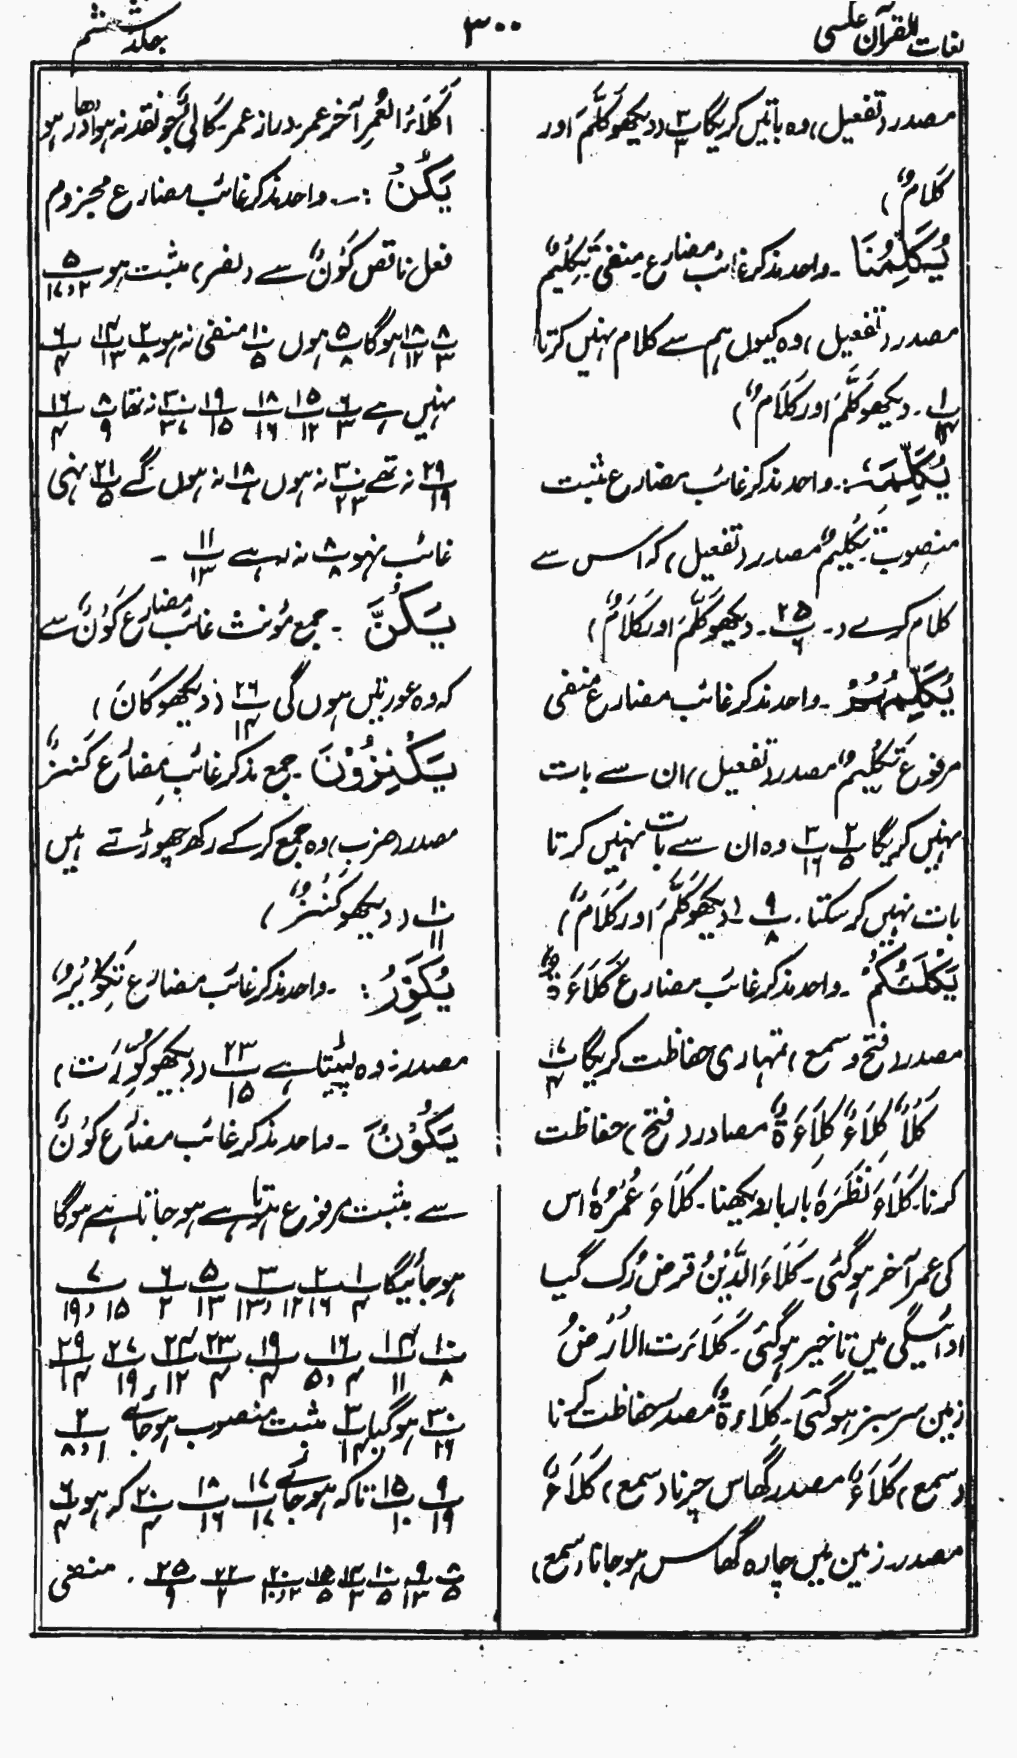 لغات القرآن عکسی
۳۰۰
جلد ششم
مصدر (تفعیل) وہ باتیں کریگا پ ۳/۳ (دیکھو کَلَّمَ اور
کَلَامٌ)
یُکَلِّمُنَا ۔ واحد مذکر غائب مضارع منفی تَکْلِیْمٌ
مصدر (تفعیل) وہ کیوں ہم سے کلام نہیں کرتا
پ ۱/۱۴ ۔ دیکھو کَلَّمَ اور کَلَامٌ)
یُکَلِّمَہٗ :۔ واحد مذکر غائب مضارع مثبت
منصوب تَکْلِیْمٌ مصدر (تفعیل) کہ اس سے
کلام کرے د۔ پ ۲۵/۶ ۔ دیکھو کَلَّمَ اور کَلَامٌ)
یُکَلِّمُہُمْ ۔ واحد مذکر غائب مضارع منفی
مرفوع تَکْلِیْمٌ مصدر (تفعیل) ان سے بات
نہیں کریگا پ ۲/۵ پ ۳/۱۶ وہ ان سے بات نہیں کرتا
بات نہیں کر سکتا ۔ پ ۹/۸ (دیکھو کَلَّمَ اور کَلَامٌ)
یَکْلَئُکُمْ ۔ واحد مذکر غائب مضارع کَلَاءَۃٌ
مصدر (فتح و سمع) تمہاری حفاظت کریگا پ ۱۷/۴
کَلْاٌ کِلَاءٌ کِلَاءَۃٌ مصادر (فتح) حفاظت
کرنا۔ کَلَاءَ نَظَرَہٗ بار بار دیکھنا۔ کَلَاءَ عُمُرُہٗ اس
کی عمر آخر ہو گئی۔ کَلَاءَ الدَّیْنُ قرض رک گیا
ادائیگی میں تاخیر ہو گئی۔ کَلَاءَتِ الْاَرْضُ
زمین سرسبز ہو گئی۔ کِلَاءَۃٌ مصدر حفاظت کرنا
(سمع) کَلَاءٌ مصدر گھاس چرنا (سمع) کَلَاءٌ
مصدر۔ زمین میں چارہ گھاس ہو جانا (سمع)
اَکْلَاءُ الْعُمُرِ آخر عمر۔ دراز عمر۔ کَالِیٌ جو نقد نہ ہو ادھار ہو
یَکُنْ :۔ واحد مذکر غائب مضارع مجزوم
فعل ناقص کَوْنٌ سے (نصر) مثبت ہو پ ۵/۲،۱۷
پ ۸/۳ پ ۱۸/۱۲ ہو گا پ ۵/۸ ہوں پ ۱۰/۵ منفی نہ ہو پ ۲/۸ پ ۱۴/۱۳ پ ۶/۴
نہیں ہے پ ۶/۳ پ ۱۵/۱۲ پ ۱۸/۱۶ پ ۱۹/۱۵ پ ۳۰/۳۷ نہ تھا پ ۸/۹ پ ۱۶/۴
پ ۲۹/۱۹ نہ تھے پ ۳۰/۲۳ نہ ہوں پ ۱۸/۸ نہ ہوں گے پ ۲۱/۵ نہی
غائب نہ ہو پ ۸/۸ نہ رہے پ ۱۱/۱۳ ۔
یَکُنَّ ۔ جمع مؤنث غائب مضارع کَوْنٌ سے
کہ وہ عورتیں ہوں گی پ ۲۶/۱۴ (دیکھو کَانَ)
یَکْنِزُوْنَ ۔ جمع مذکر غائب مضارع کَنْزٌ
مصدر (ضرب) وہ جمع کر کے رکھ چھوڑتے ہیں
پ ۱۰/۱۱ (دیکھو کَنْزٌ)
یُکَوِّرُ :۔ واحد مذکر غائب مضارع تَکْوِیْرٌ
مصدر۔ وہ لپیٹتا ہے پ ۲۳/۱۵ (دیکھو کُوِّرَتْ)
یَکُوْنُ ۔ واحد مذکر غائب مضارع کَوْنٌ
سے مثبت مرفوع ہوتا ہے ہو جاتا ہے ہو گا
ہو جائیگا پ ۱/۴ پ ۲/۱۶ پ ۳/۱۲،۱۳ پ ۵/۱۳ پ ۶/۲ پ ۷/۱۵،۱۹
پ ۱۰/۸ پ ۱۴/۱۱ پ ۱۶/۴،۵ پ ۱۹/۴ پ ۲۳/۴ پ ۲۴/۱۲ پ ۲۷/۱۹ پ ۲۹/۱۴
پ ۳۰/۲۶ ہو گیا پ ۳/۱۴ مثبت منصوب ہو جائے پ ۲/۱،۸
پ ۹/۱۹ پ ۱۵/۱۰ تاکہ ہو جائے پ ۱۷/۱۷ پ ۱۸/۱۶ پ ۲۰/۴ کہ ہو پ ۶/۴
پ ۸/۵ پ ۹/۱۳ پ ۱۰/۵ پ ۱۴/۳ پ ۱۵/۵ پ ۲۰/۲،۱۰ پ ۲۲/۲ پ ۲۵/۹ ۔ منفی